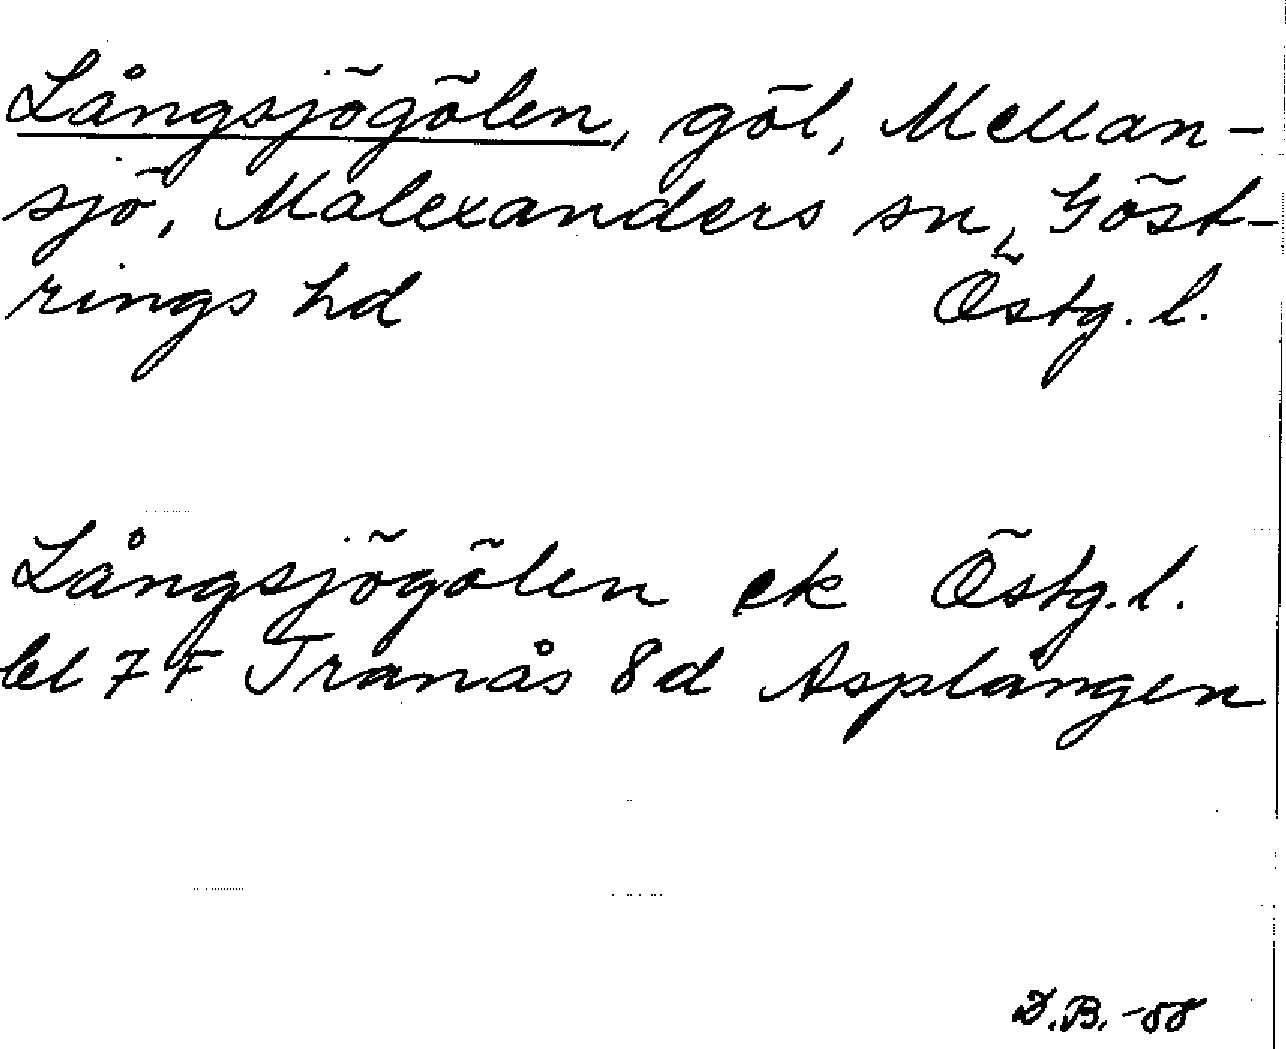 Långsjögölen, göl, Mellan-
sjö, Malexanders sn, Göst-
rings hd Östg. l.
Långsjögölen ek Östg. l.
bl 7 F Tranås 8d Asplången
D.B. -88